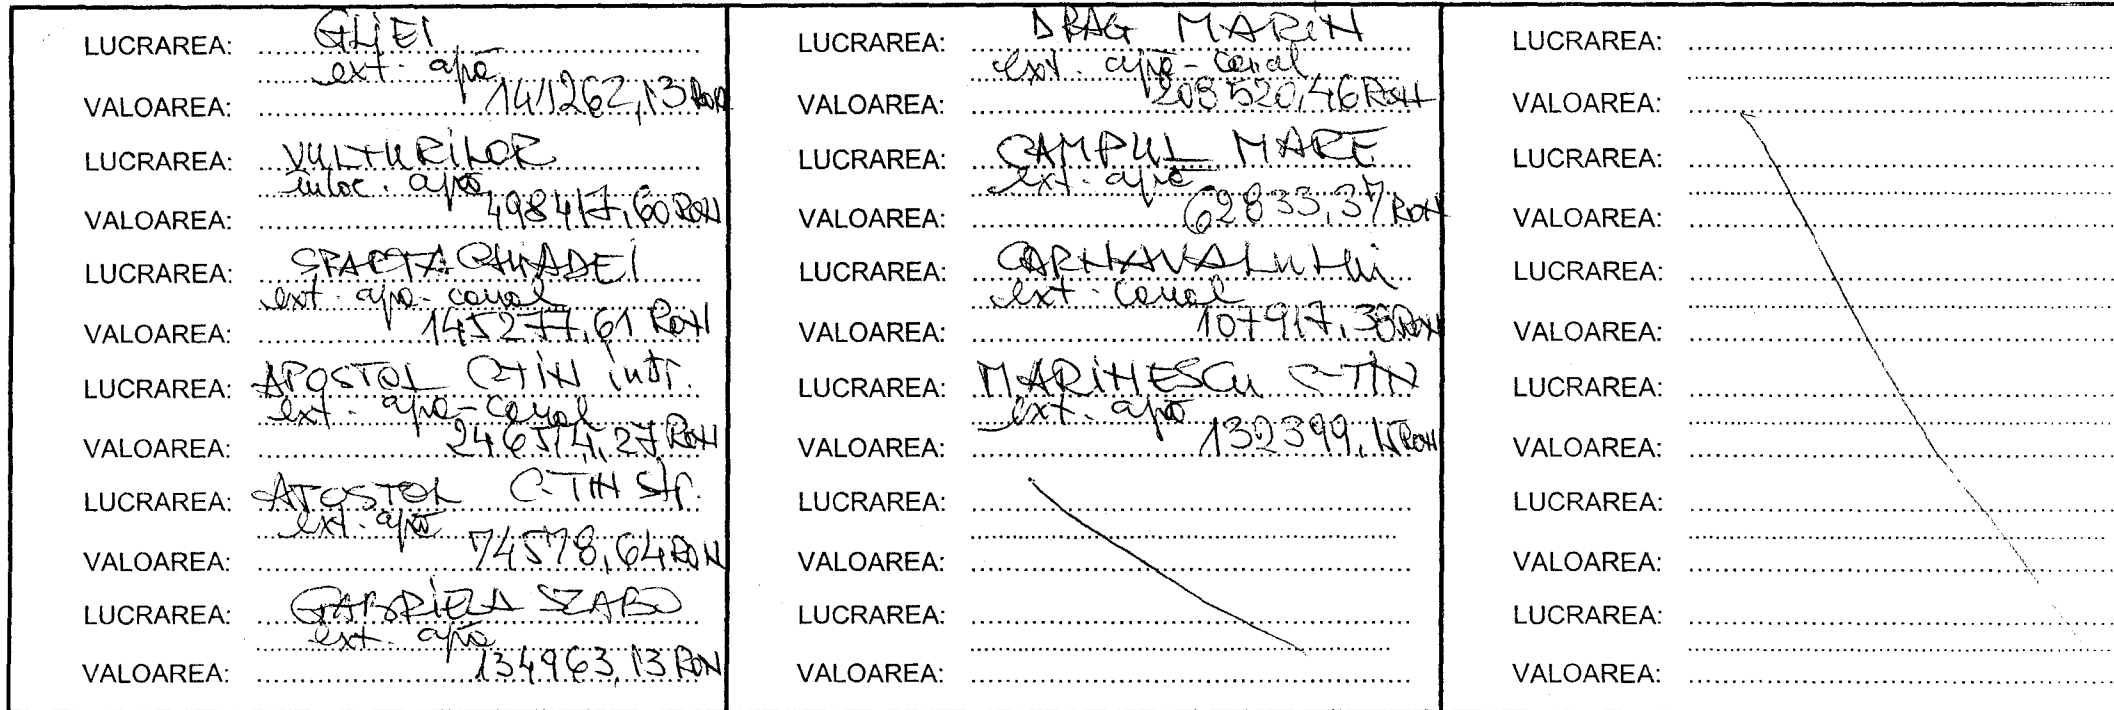 LUCRAREA: GLIEI
ext. apă
VALOAREA: 141262,13 RON
LUCRAREA: VULTURILOR
înloc. apă
VALOAREA: 498417,60 RON
LUCRAREA: SPARTACHIADEI
ext. apă-canal
VALOAREA: 145277,61 RON
LUCRAREA: APOSTOL C-TIN intr.
ext. apă-canal
VALOAREA: 246514,27 RON
LUCRAREA: APOSTOL C-TIN str.
ext. apă
VALOAREA: 74578,64 RON
LUCRAREA: GABRIELA SZABO
ext. apă
VALOAREA: 134963,13 RON
LUCRAREA: DRAG MARIN
ext. apă-canal
VALOAREA: 208520,46 RON
LUCRAREA: CAMPUL MARE
ext. apă
VALOAREA: 62833,37 RON
LUCRAREA: CARNAVALULUI
ext. canal
VALOAREA: 107917,38 RON
LUCRAREA: MARINESCU C-TIN
ext. apă
VALOAREA: 132399,15 RON
LUCRAREA:
VALOAREA:
LUCRAREA:
VALOAREA:
LUCRAREA:
VALOAREA:
LUCRAREA:
VALOAREA:
LUCRAREA:
VALOAREA:
LUCRAREA:
VALOAREA:
LUCRAREA:
VALOAREA:
LUCRAREA:
VALOAREA: